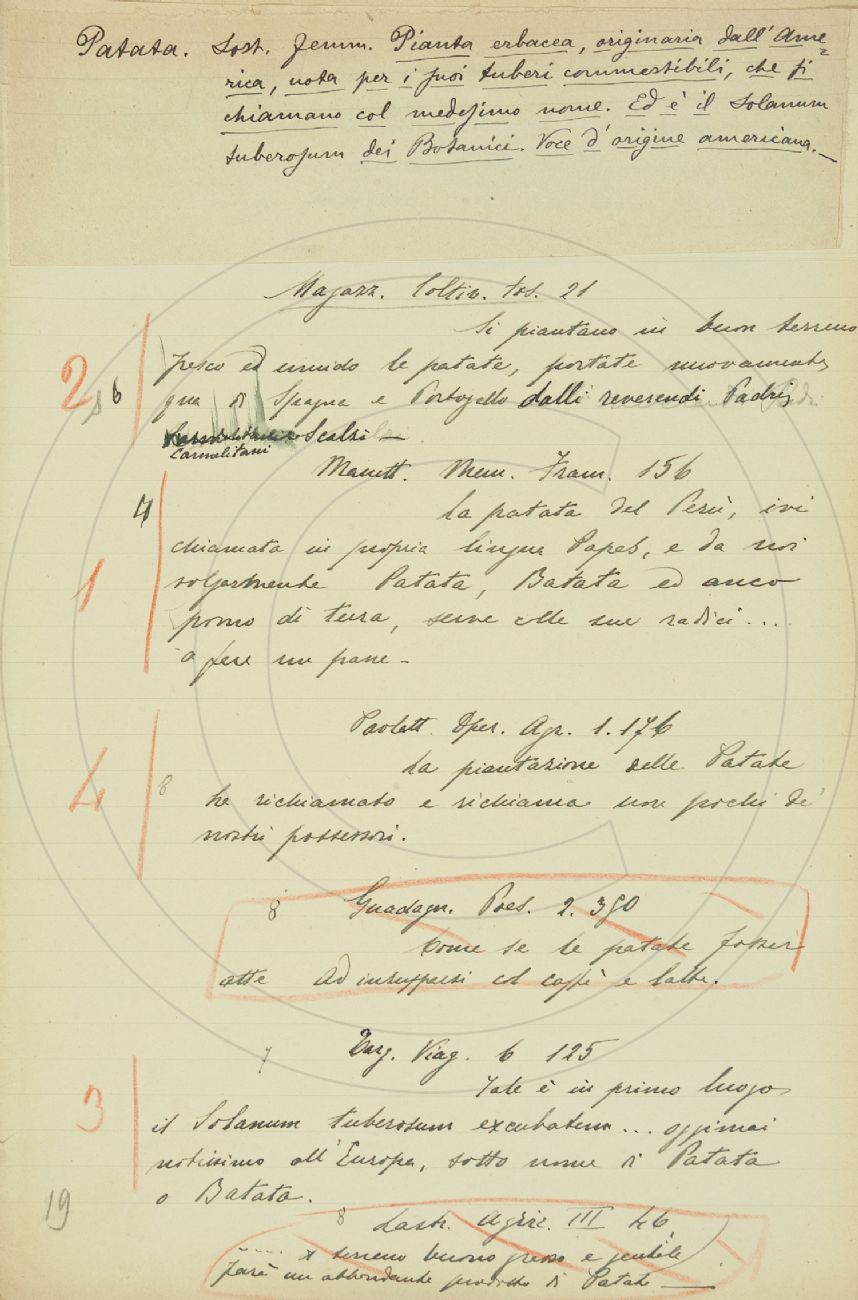 Patata. Sost. femm. Pianta erbacea, originaria dall'Ame=
rica, nota per i suoi tuberi commestibili, che si
chiamano col medesimo nome. Ed è il Solanum
tuberosum dei Botanici. Voce d'origine americana.—
Magazz. Coltiv. tos. 21
Si piantano in buon terreno
2 fresco ed umido le patate, portate nuovamente
8 6 qua di Spagna e Portogallo dalli reverendi Padri
Scalzi —
Carmelitani
Manett. Mem. Frum. 156
4 la patata del Perù, ivi
chiamata in propria lingua Papas, e da noi
1 volgarmente Patata, Batata ed anco
pomo di terra, serve colle sue radici...
a fare un pane -
Paolett. Oper. Agr. 1. 176
La piantazione delle Patate
4 8 ha richiamato e richiama non pochi de'
nostri possessori.
8 Guadagn. Poes. 2. 350
Come se le patate fosser
atte Ad inzupparsi col caffè e latte.
7 Targ. Viag. 6 125
Tale è in primo luogo
3 il Solanum tuberosum esculentum... oggimai
notissimo all'Europa, sotto nome di Patata
o Batata.
19
8 Lastr. Agric. III 46
terreno buono grosso e gentile
farà un abbondante prodotto di Patate —